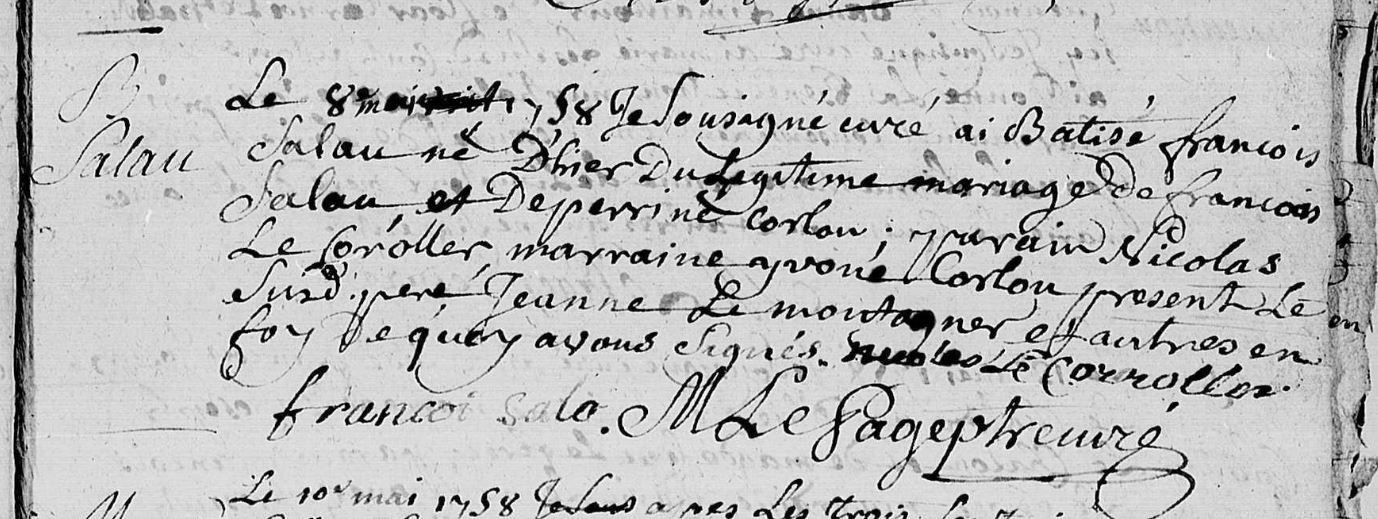 B.
Salau
Le 8e mai 1758 Je Sousigné curé ai Batisé francois
Salau né D'hier Du Legitime mariage de francois
Salau et De perrine Corlou ; parain Nicolas
Le Coroller, marraine yvone Corlou present Le
Susd. pere Jeanne Le montagner et autres en
foy De quoy avons Signés. Nicolas Le Corroller.
francoi Salo. M Le Page ptre curé
Le 10e mai 1758